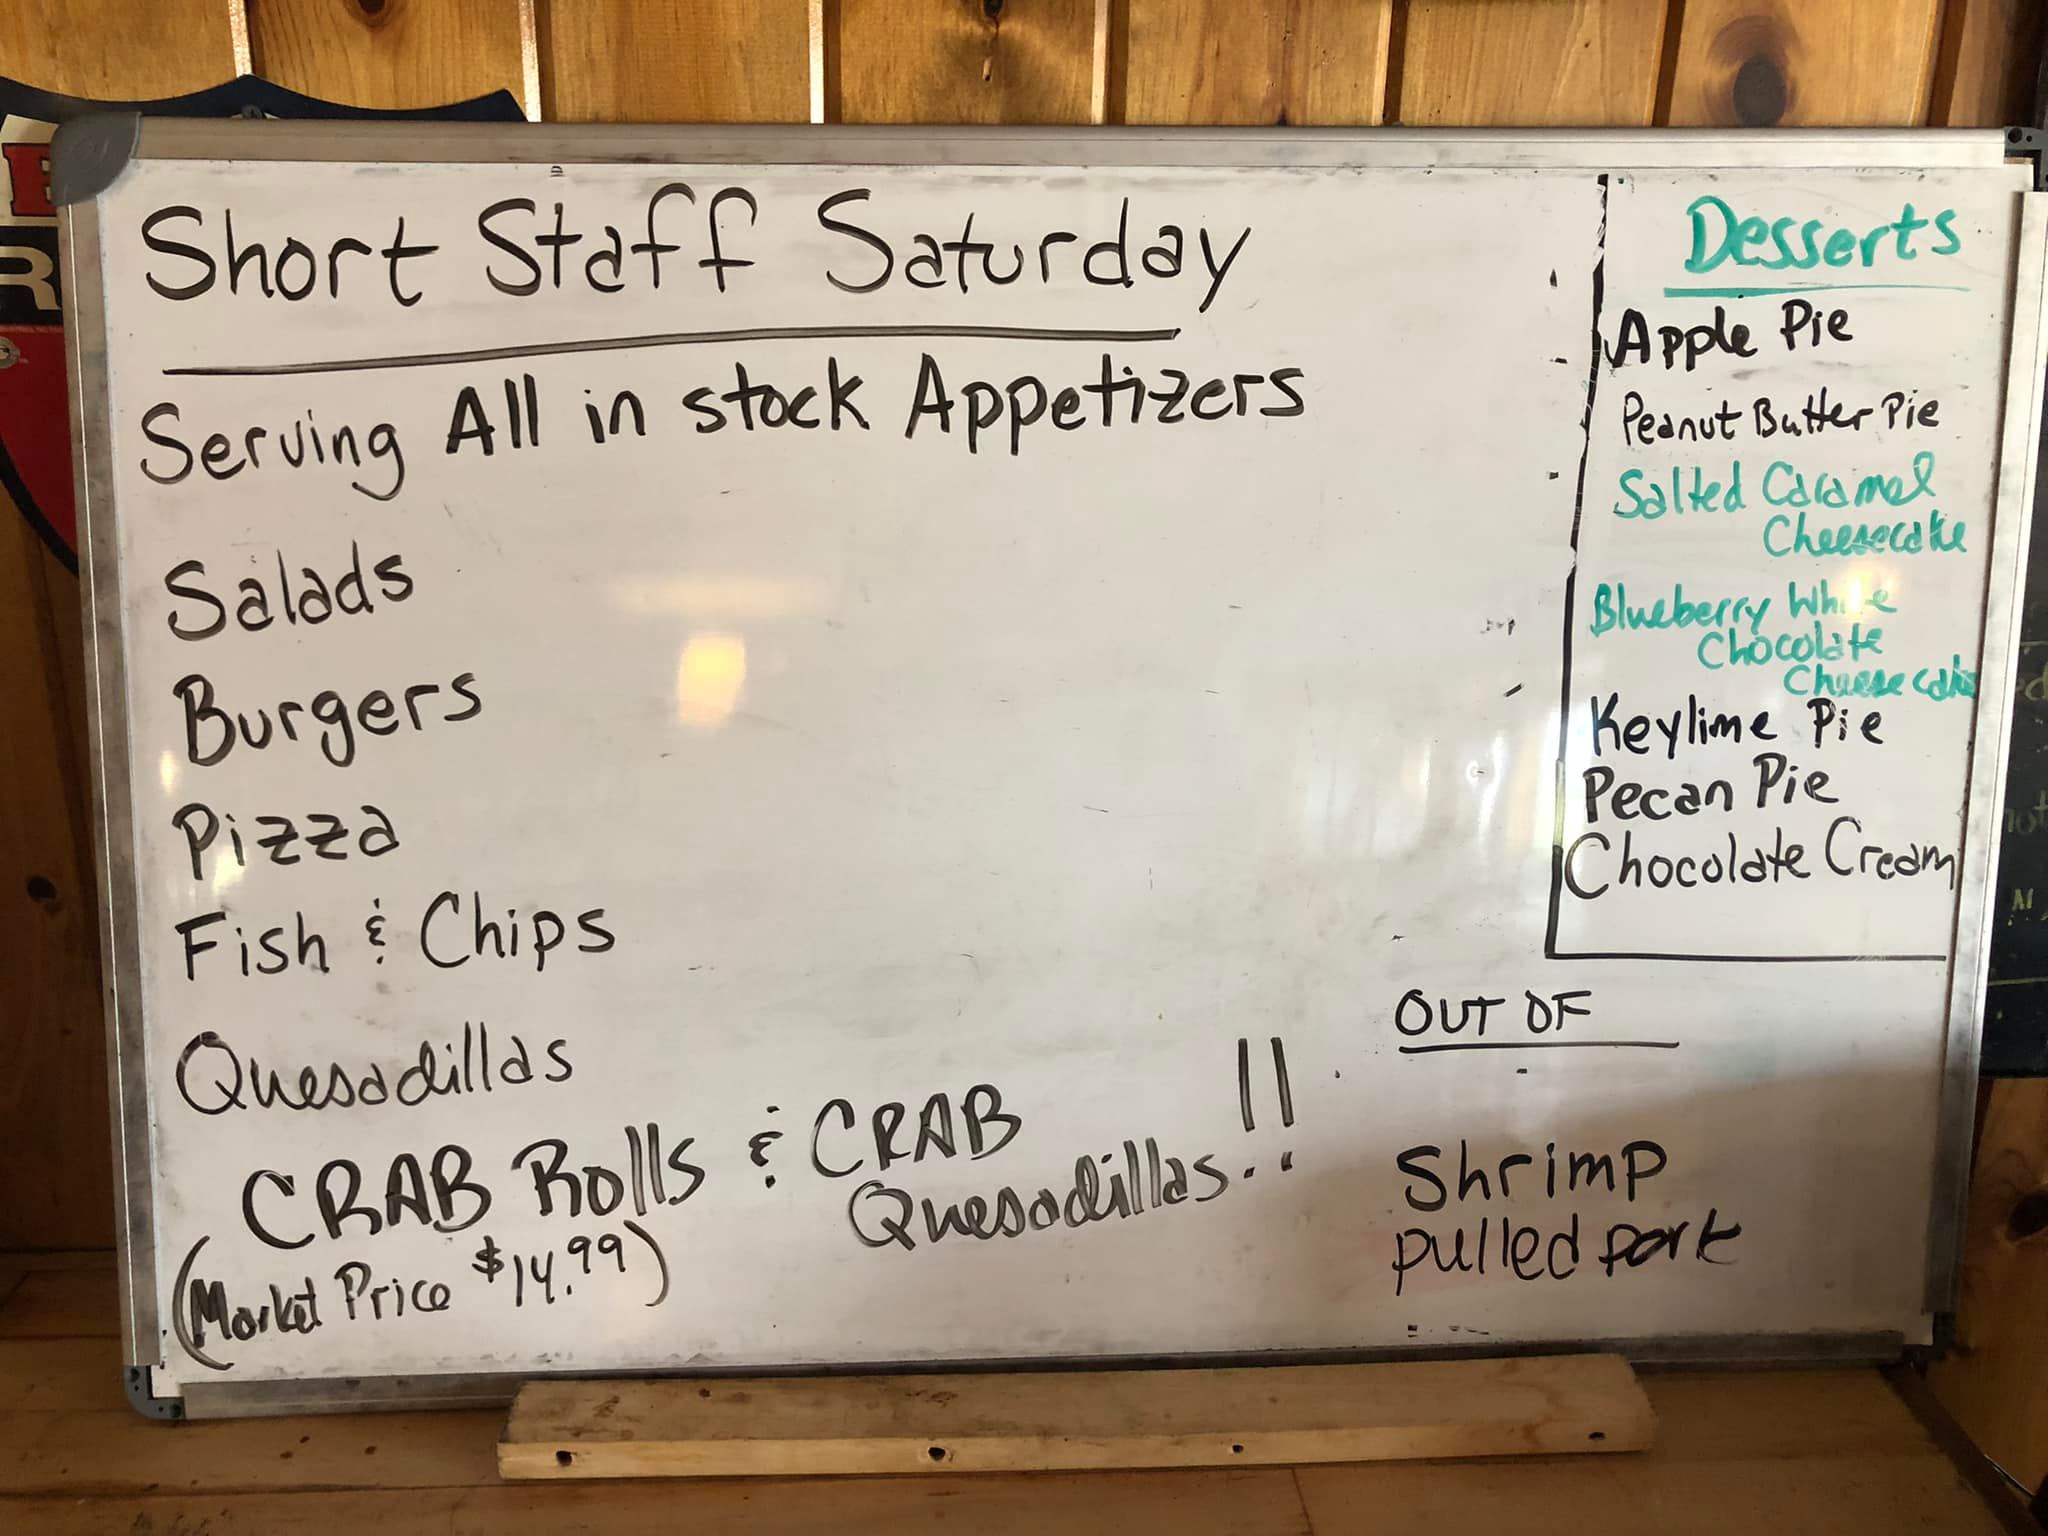 Short Staff Saturday
Serving All in stock Appetizers
Salads
Burgers
Pizza
Fish & Chips
Quesadillas
CRAB Rolls & CRAB
Quesadillas!!
(Market Price $14.99)
Desserts
Apple Pie
Peanut Butter Pie
Salted Caramel
Cheesecake
Blueberry White
Chocolate
Cheesecake
Keylime Pie
Pecan Pie
Chocolate Cream
OUT OF
Shrimp
pulled pork